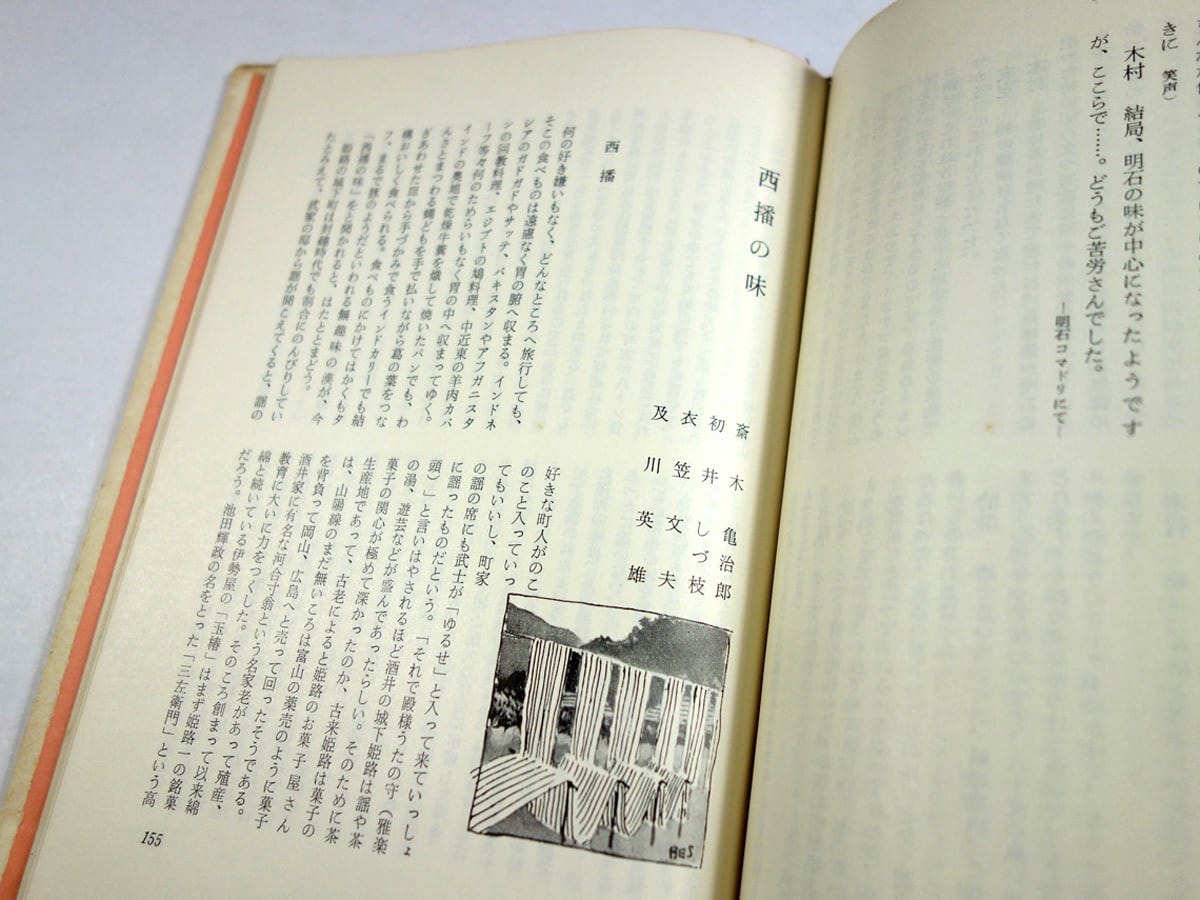 きに 笑声)
木村 結局、明石の味が中心になったようです
が、ここらで……。どうもご苦労さんでした。
―明石コマドリにて―
西播の味
斎木亀治郎
初井しづ枝
衣笠文夫
及川英雄
西播
何の好き嫌いもなく、どんなところへ旅行しても、
そこの食べものは遠慮なく胃の腑へ収まる。インドネ
シアのガドガドやサッテ、パキスタンやアフガニスタ
ンの回教料理、エジプトの鳩料理、中近東の羊肉カバ
ーブ等々何のためらいもなく胃の中へ収まってゆく。
インドの奥地で乾燥牛糞を燃して焼いたパンでも、わ
んさとまつわる蠅どもを手で払いながら葛の葉をつな
ぎあわせた皿から手づかみで食うインドカリーでも結
構おいしく食べられる。食べものにかけてはかくもタ
フ、まるで豚のようだといわれる無趣味の漢が、今
「西播の味」をと聞かれると、はたととまどう。
姫路の城下町は封建時代でも割合にのんびりしてい
たとみえて、武家の邸から謡が聞こえてくると、謡の
好きな町人がのこ
のこと入っていっ
てもいいし、町家
の謡の席にも武士が「ゆるせ」と入って来ていっしょ
に謡ったものだという。「それで殿様うたの守(雅楽
頭)」と言いはやされるほど酒井の城下姫路は謡や茶
の湯、遊芸などが盛んであったらしい。そのために茶
菓子の関心が極めて深かったのか、古来姫路は菓子の
生産地であって、古老によると姫路のお菓子屋さん
は、山陽線のまだ無いころは富山の薬売のように菓子
を背負って岡山、広島へと売って回ったそうである。
酒井家に有名な河合寸翁という名家老があって殖産、
教育に大いに力をつくした。そのころ創まって以来綿
綿と続いている伊勢屋の「玉椿」はまず姫路一の銘菓
だろう。池田輝政の名をとった「三左衛門」という高
155
BES